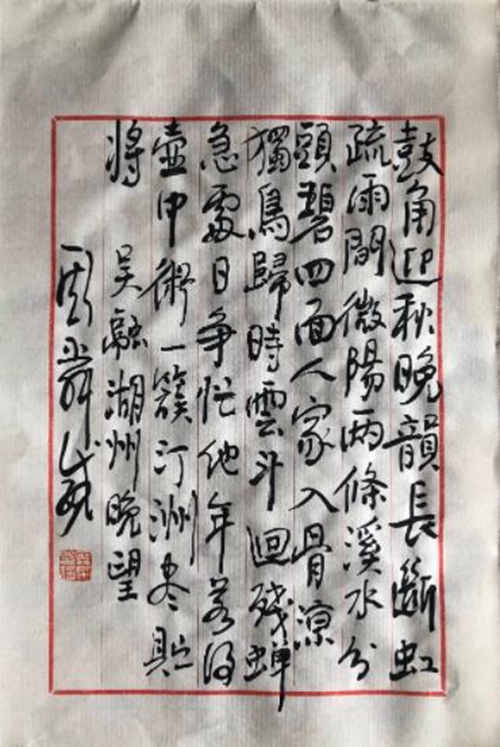 鼓角迎秋晚韻長斷虹
疏雨間微陽两條溪水分
頭碧四面人家入骨凉
獨鳥歸時雲斗迴残蟬
急處日争忙他年若得
壺中術一簇汀洲尽貯
將 吴融湖州晚望
周